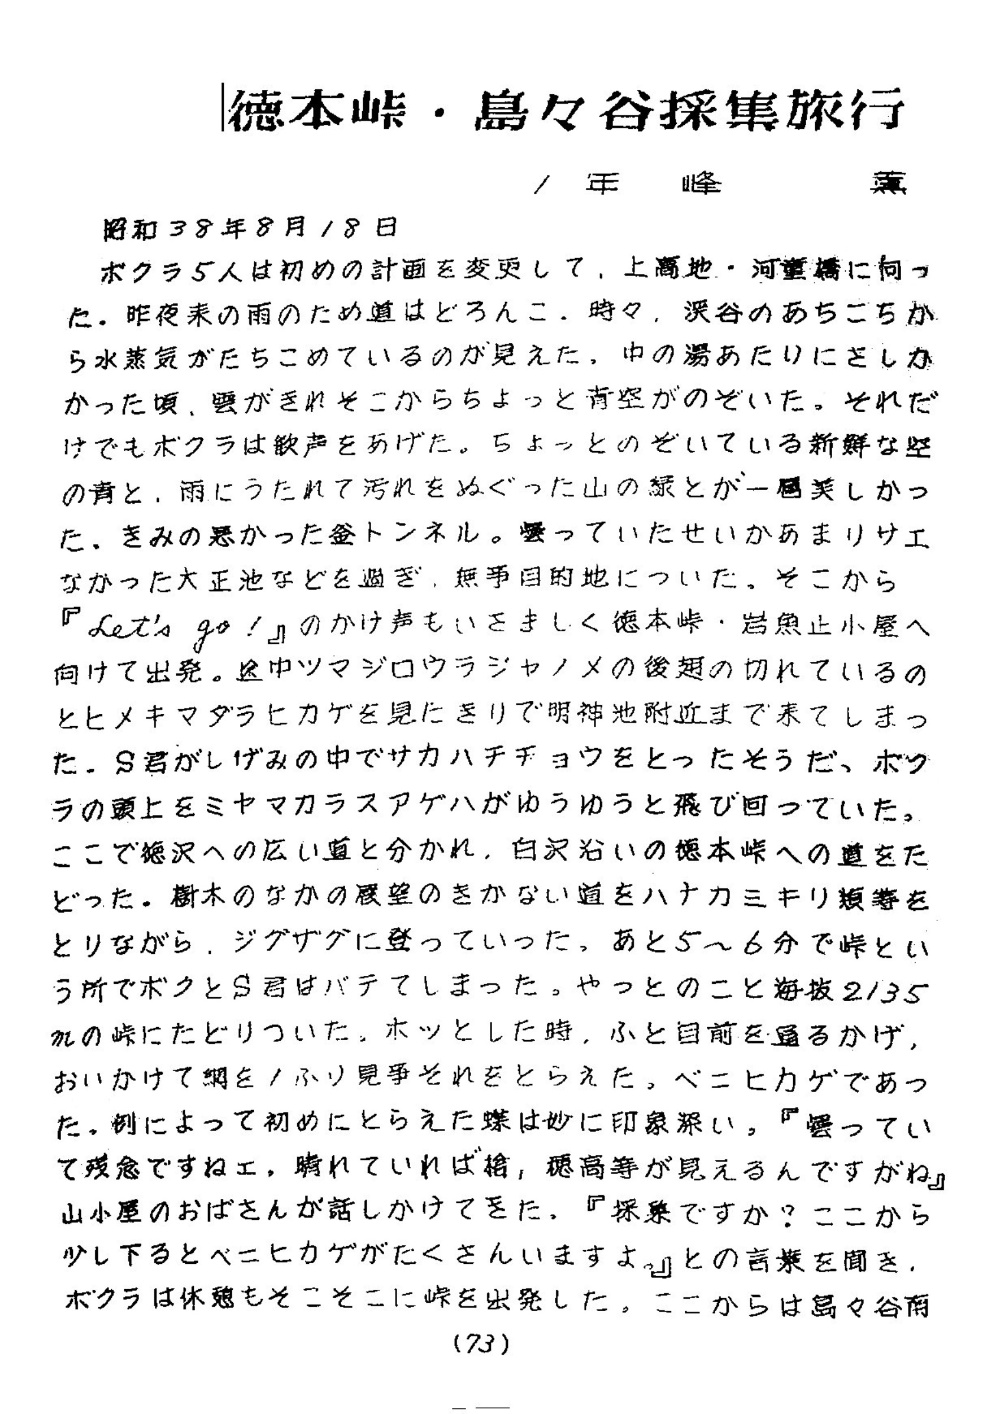 徳本峠・島々谷採集旅行
1年 峰 薫
昭和38年8月18日
ボクラ5人は初めの計画を変更して、上高地・河童橋に向っ
た。昨夜来の雨のため道はどろんこ。時々、渓谷のあちこちか
ら水蒸気がたちこめているのが見えた。中の湯あたりにさしか
かった頃、雲がきれそこからちょっと青空がのぞいた。それだ
けでもボクラは歓声をあげた。ちょっとのぞいている新鮮な空
の青と、雨にうたれて汚れをぬぐった山の緑とが一層美しかっ
た。きみの悪かった釜トンネル。曇っていたせいかあまりサエ
なかった大正池などを過ぎ、無事目的地についた。そこから
『Let's go!』のかけ声もいさましく徳本峠・岩魚止小屋へ
向けて出発。途中ツマジロウラジャノメの後翅の切れているの
とヒメキマダラヒカゲを見たきりで明神池附近まで来てしまっ
た。S君がしげみの中でサカハチチョウをとったそうだ、ボク
ラの頭上をミヤマカラスアゲハがゆうゆうと飛び回っていた。
ここで徳沢への広い道と分かれ、白沢沿いの徳本峠への道をた
どった。樹木のなかの展望のきかない道をハナカミキリ類等を
とりながら、ジグザグに登っていった。あと5〜6分で峠とい
う所でボクとS君はバテてしまった。やっとのこと海抜2135
mの峠にたどりついた。ホッとした時、ふと目前を通るかげ、
おいかけて網を1ふり見事それをとらえた。ベニヒカゲであっ
た。例によって初めにとらえた蝶は妙に印象深い。『曇ってい
て残念ですねェ。晴れていれば槍，穂高等が見えるんですがね』
山小屋のおばさんが話しかけてきた。『採集ですか？ここから
少し下るとベニヒカゲがたくさんいますよ。』との言葉を聞き、
ボクラは休憩もそこそこに峠を出発した。ここからは島々谷南
(73)